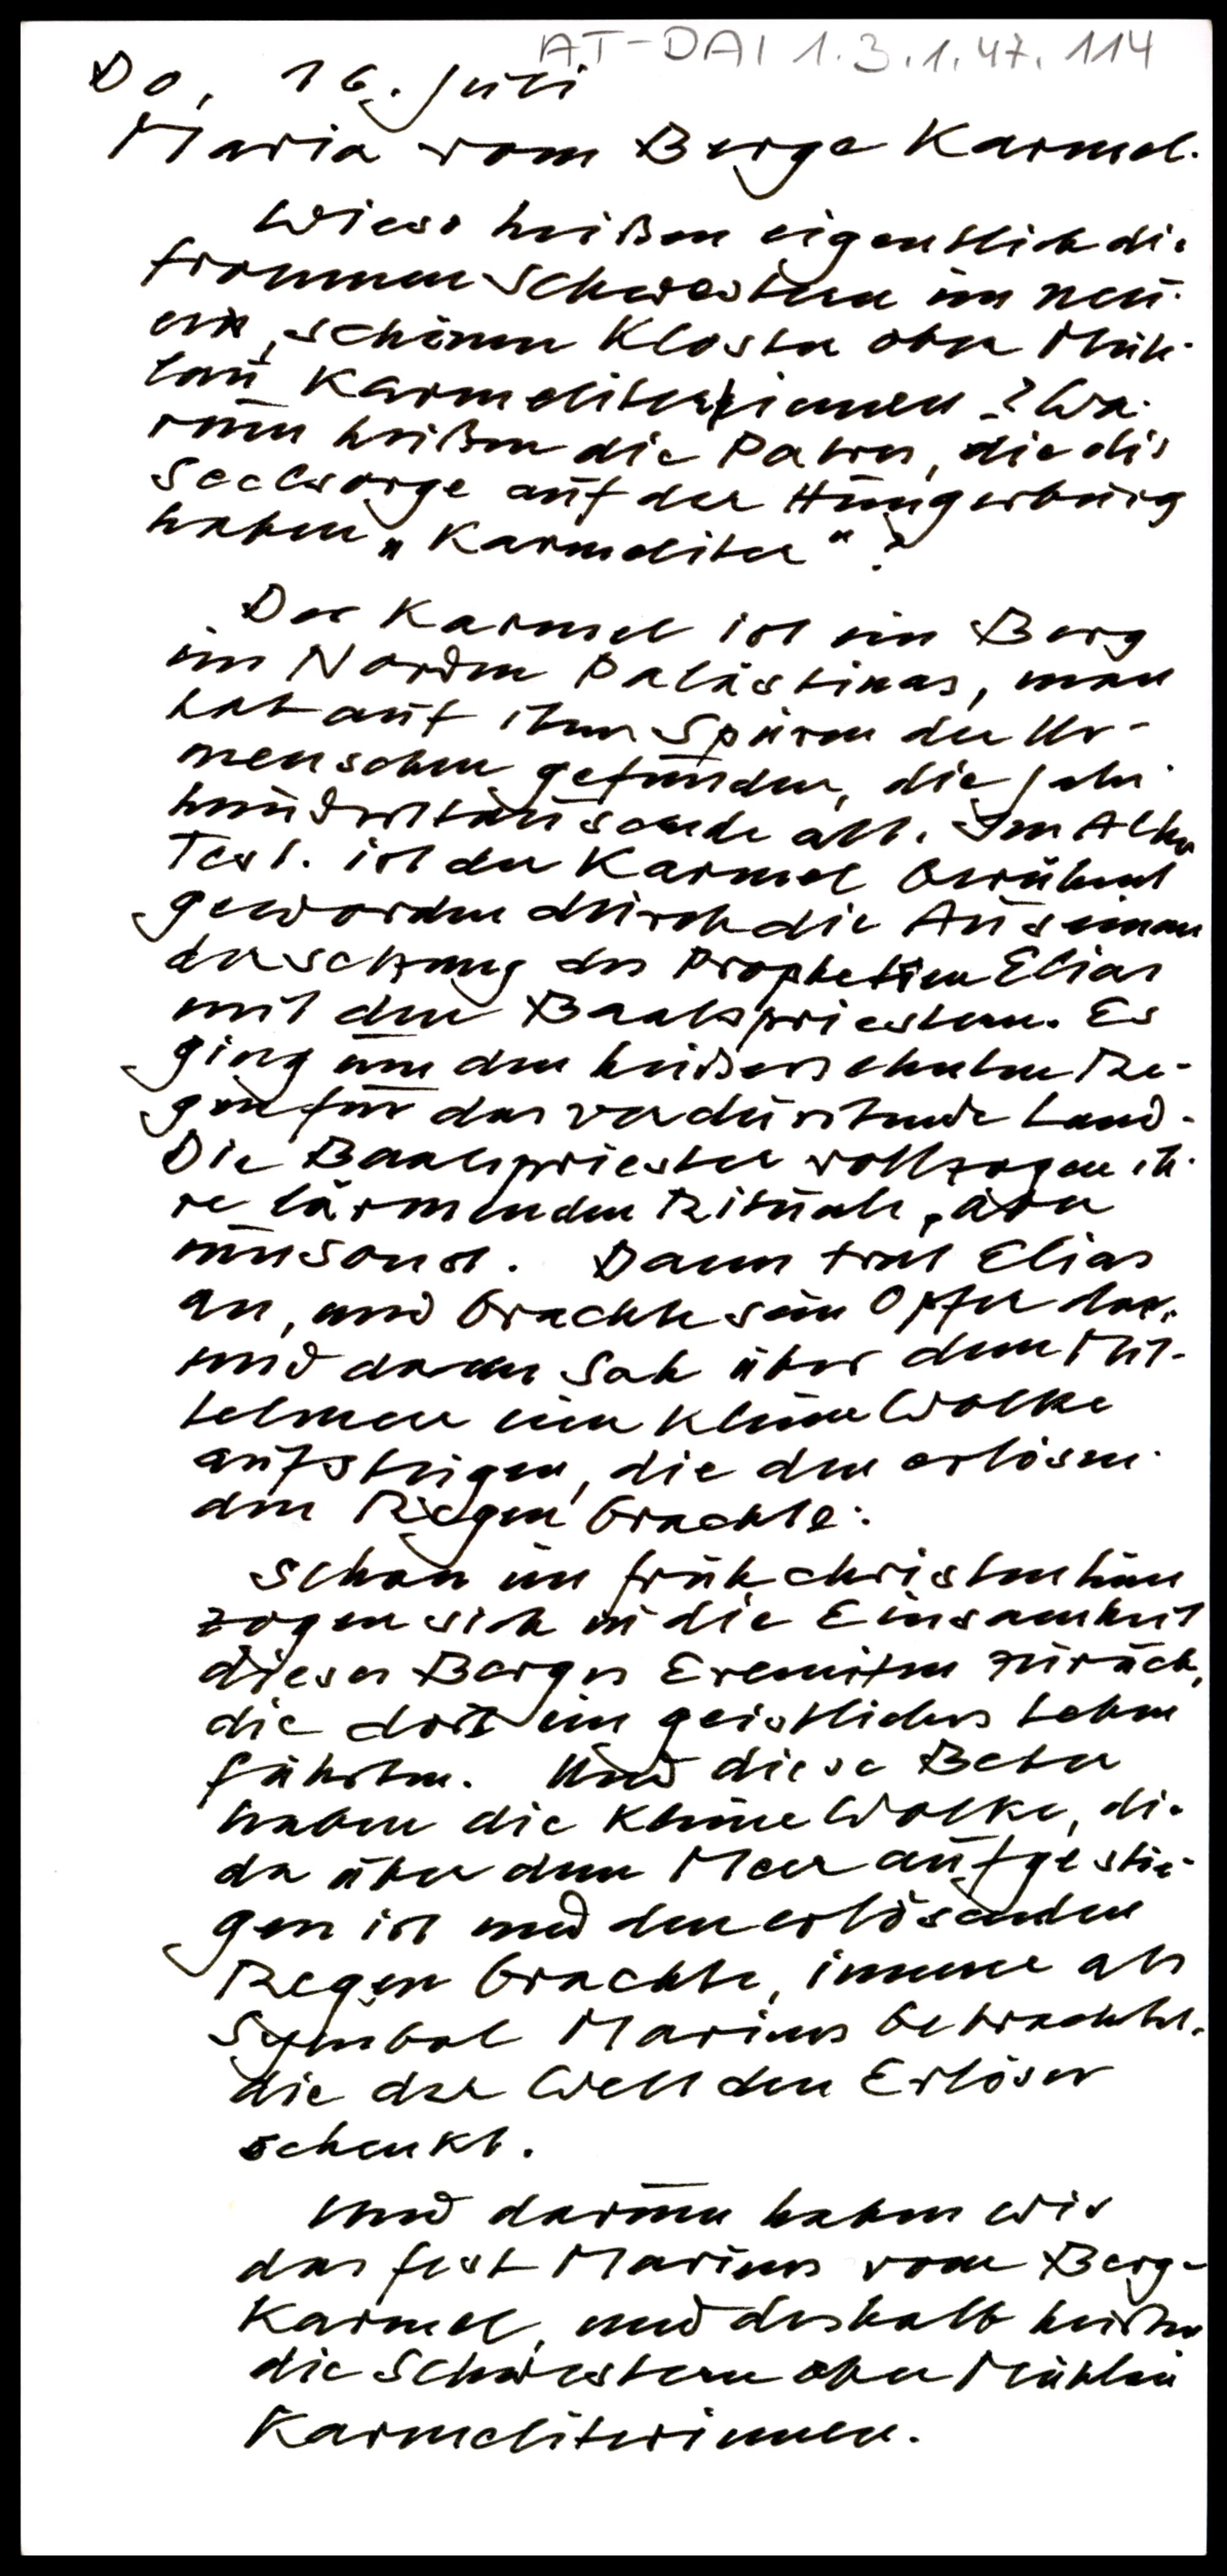 AT-DAI 1.3.1.47.114
Do, 16. Juli
Maria vom Berge Karmel.
Wieso heißen eigentlich die
frommen Schwestern im neu-
en, schönen Kloster ober Müh-
lau Karmeliterinnen? Wa-
rum heißen die Patres, die die
Seelsorge auf der Hungerburg
haben „Karmeliter"?
Der Karmel ist ein Berg
im Norden Palästinas, man
hat auf ihm Spuren der Ur-
menschen gefunden, die Jahr-
hunderttausende alt. Im Alten
Test. ist der Karmel berühmt
geworden durch die Auseinan
dersetzung des Propheten Elias
mit den Baalspriestern. Es
ging um den heißersehnten Re-
gen für das verdürstende Land.
Die Baalspriester vollzogen ih-
re lärmenden Rituale, aber
umsonst. Dann trat Elias
an, und brachte sein Opfer dar,
und dann sah über dem Mit-
telmeer eine kleine Wolke
aufsteigen, die den erlösen-
den Regen brachte.
Schon im Frühchristentum
zogen sich in die Einsamkeit
dieses Berges Eremiten zurück,
die dort ein geistliches Leben
führten. Und diese Beter
haben die kleine Wolke, die
da über dem Meer aufgestie-
gen ist und den erlösenden
Regen brachte, immer als
Symbol Mariens betrachtet,
die der Welt den Erlöser
schenkt.
Und darum haben wir
das Fest Mariens vom Berg-
Karmel, und deshalb heißen
die Schwestern ober Mühlau
Karmeliterinnen.